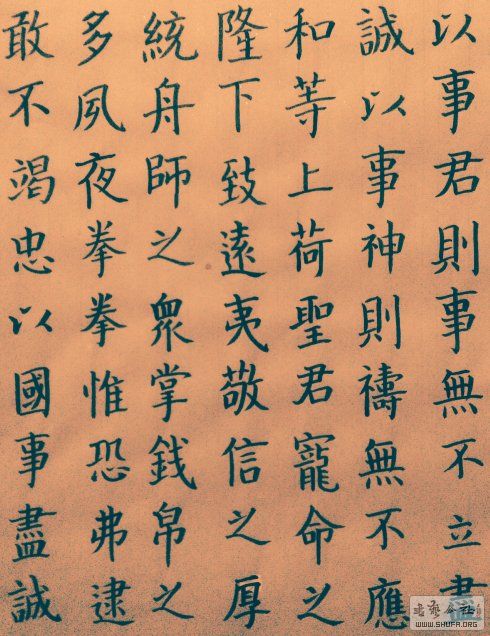 以事君則事無不立盡
誠以事神則禱無不應
和等上荷聖君寵命之
隆下致遠夷敬信之厚
統舟師之衆掌錢帛之
多夙夜拳拳惟恐弗逮
敢不竭忠以國事盡誠
书艺公社
WWW.SHUFA.ORG